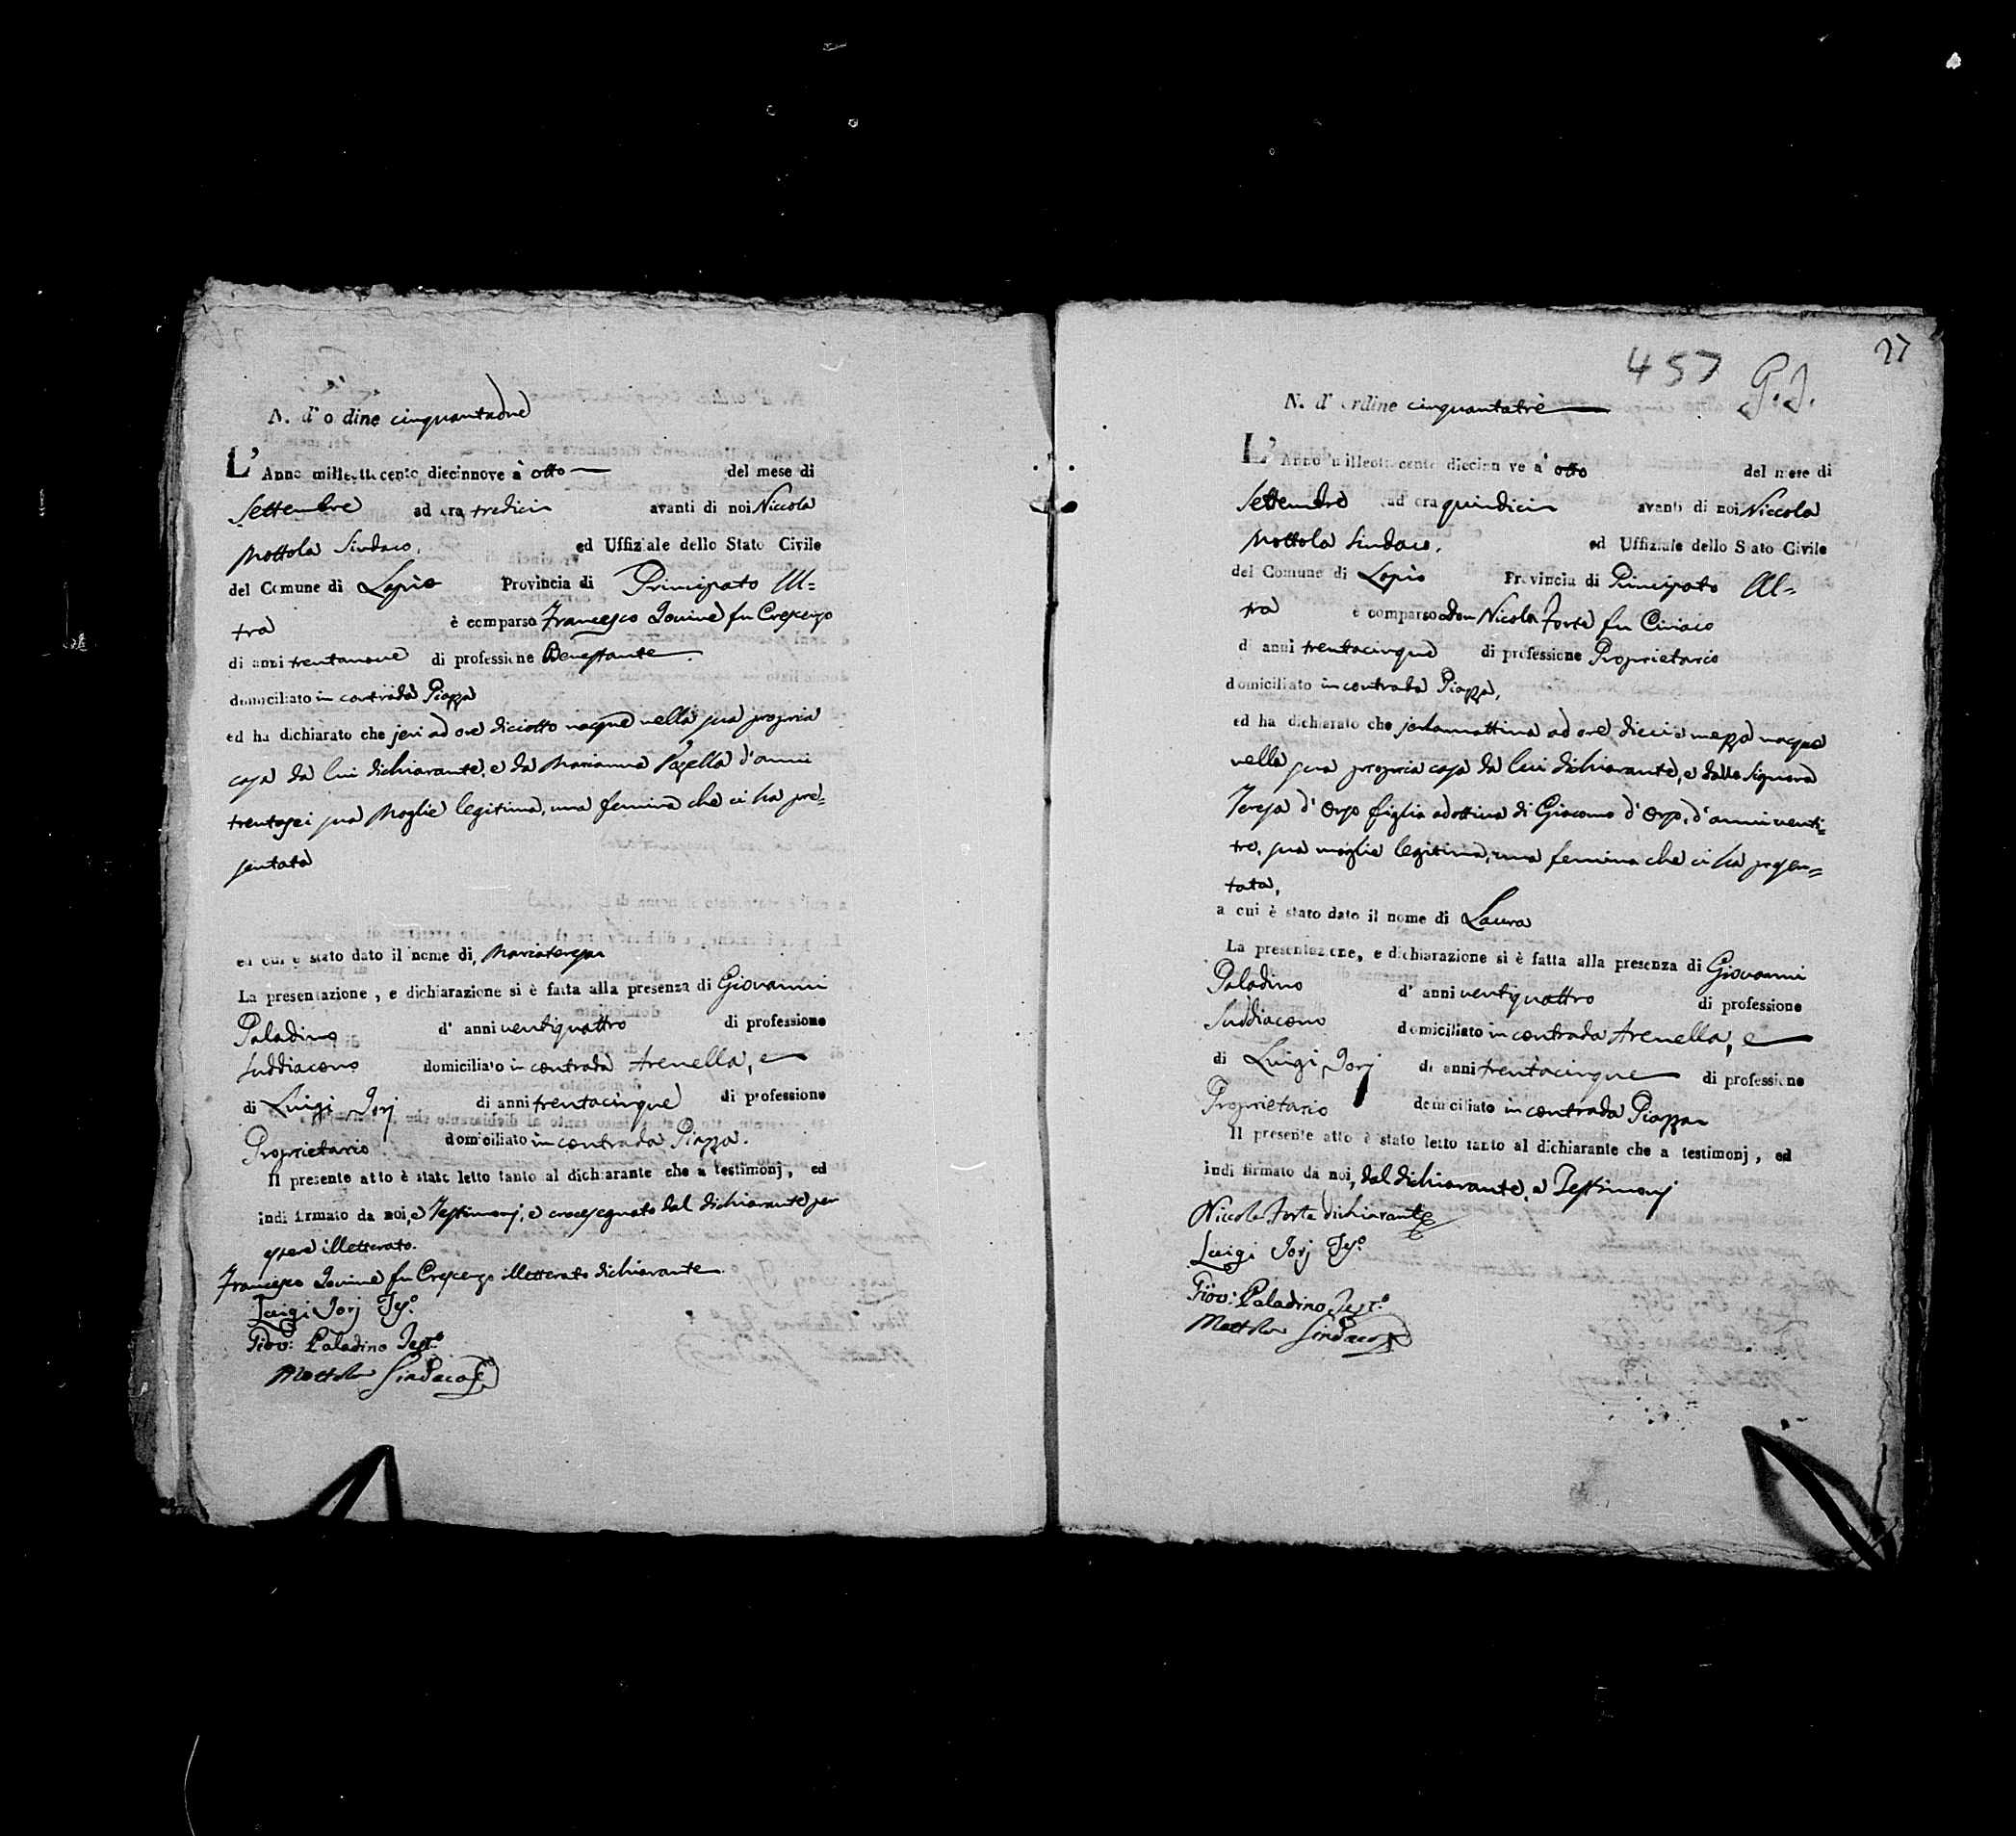 N. d' o dine cinquantadue
L' Anno milleottocento diecinnove à otto del mese di
Settembre ad ora tredici avanti di noi Niccola
Mottola Sindaco, ed Uffiziale dello Stato Civile
del Comune di Lapio Provincia di Principato Ul=
tra è comparso Francesco Jovine fu Crescenzo
di anni trentanove di professione Benestante
domiciliato in contrada Piazza
ed ha dichiarato che jeri ad ore diciotto nacque nella sua propria
casa da lui dichiarante, e da Marianna d'anni
trentasei sua Moglie legitima, una femina che ci ha pre=
sentata
ed cui è stato dato il nome di, Mariateresa
La presentazione, e dichiarazione si è fatta alla presenza di Giovanni
Paladino d' anni ventiquattro di professione
Suddiacono domiciliato in contrada trenella, e
di Luigi Jorj di anni trentacinque di professione
Proprietario domiciliato in contrada Piazza.
Il presente atto è stato letto tanto al dichiarante che a testimonj, ed
indi firmato da noi, e Testimonj, e crocesegnato dal dichiarante per
essere illetterato.
Francesco Jovine fu Crescenzo illetterato dichiarante
Luigi Jorj Tes.º
Giov: Paladino Test.º
Mottola Sindaco
27
457 G.J.
N. d' ordine cinquantatrè
L' Anno milleottocento diecinnove a' otto del mese di
Settembre ad ora quindici avanti di noi Niccola
Mottola Sindaco, ed Uffiziale dello Stato Civile
del Comune di Lapio Provincia di Principato Ul=
tra è comparso don Nicola Forte fu Ciriaco
di anni trentacinque di professione Proprietario
domiciliato in contrada Piazza,
ed ha dichiarato che ad ore dieci e mezza nacque
nella sua propria casa da lui dichiarante, e dalla Signora
Teresa d' Orso figlia adottiva di Giacomo d' Orso, d' anni venti=
tre, sua moglie legitima, una femina che ci ha presen=
tata,
a cui è stato dato il nome di Laura
La presentazione, e dichiarazione si è fatta alla presenza di Giovanni
Paladino d' anni ventiquattro di professione
Suddiacono domiciliato in contrada trenella, e
di Luigi Jorj di anni trentacinque di professione
Proprietario domiciliato in contrada Piazza
Il presente atto è stato letto tanto al dichiarante che a testimonj, ed
indi firmato da noi, dal dichiarante, e Testimonj
Niccola Forte dichiarante
Luigi Jorj Tes.º
Giov: Paladino Test.º
Mottola Sindaco